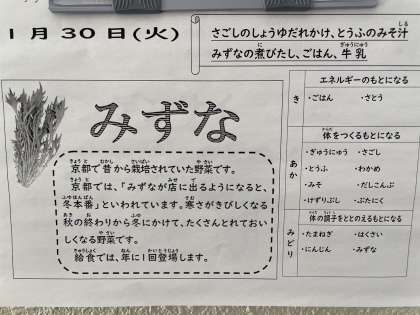 1月30日(火)
さごしのしょうゆだれかけ、とうふのみそ汁
みずなの煮びたし、ごはん、牛乳
みずな
京都で昔から栽培されていた野菜です。
京都では、「みずなが店に出るようになると、
冬本番」といわれています。寒さがきびしくなる
秋の終わりから冬にかけて、たくさんとれておい
しくなる野菜です。
給食では、年に1回登場します。
き
エネルギーのもとになる
・ごはん ・さとう
あか
体をつくるもとになる
・ぎゅうにゅう ・さごし
・とうふ ・わかめ
・みそ ・だしこんぶ
・けずりぶし ・ぶたにく
みどり
体の調子をととのえるもとになる
・たまねぎ ・はくさい
・にんじん ・みずな